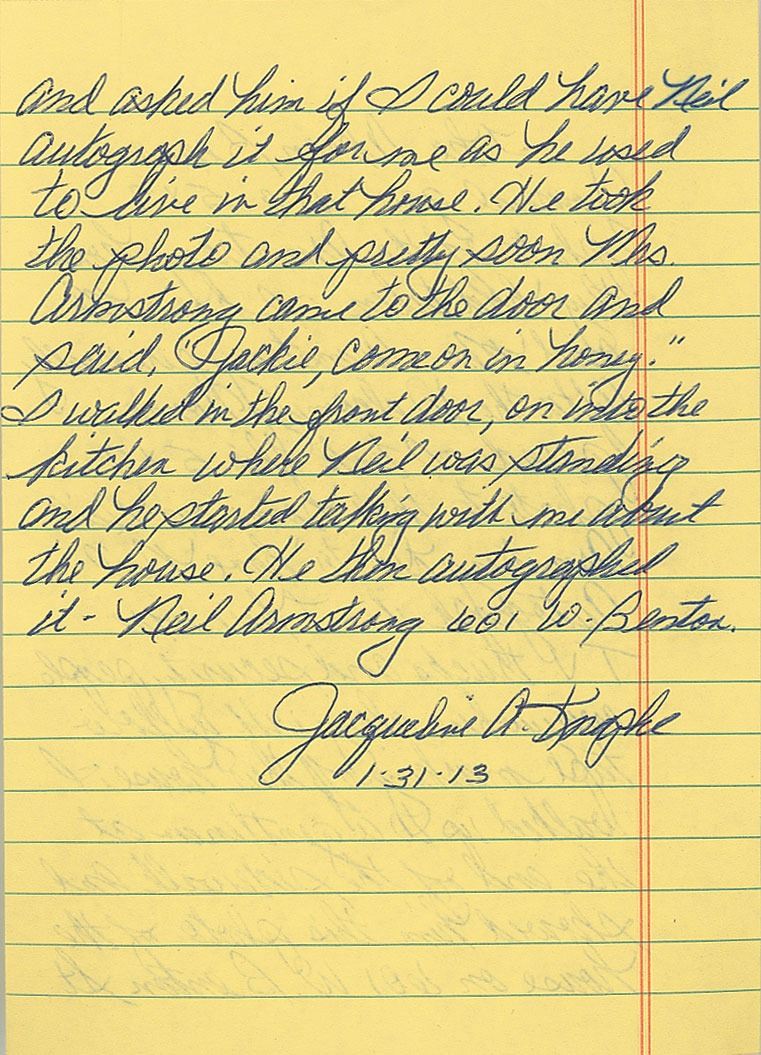 and asked him if I could have Neil
autograph it for me as he used
to live in that house. He took
the photo and pretty soon Mrs.
Armstrong came to the door and
said, "Jackie, come on in honey."
I walked in the front door, on into the
kitchen where Neil was standing
and he started talking with me about
the house. He then autographed
it - Neil Armstrong 601 W. Benton.
Jacqueline A.
1-31-13